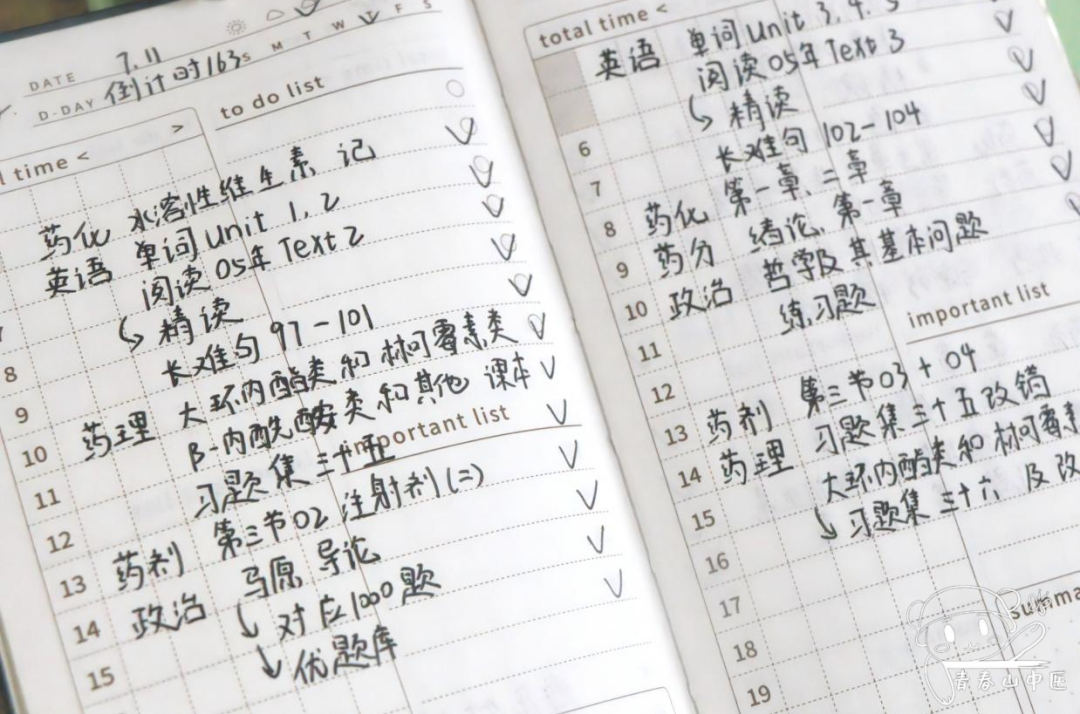 DATE 7.11
D-DAY 倒计时163
S M T W T F S
total time <
>
to do list
药化 水溶性维生素 记
英语 单词 Unit 1、2
阅读 05年 Text 2
↳ 精读
长难句 97-101
药理 大环内酯类和林可霉素类
β-内酰胺类和其他 课本
习题集 三十五
important list
药剂 第三节02 注射剂(二)
政治 马原 导论
↳ 对应1000题
↘ 优题库
8
9
10
11
12
13
14
15
total time <
英语 单词 Unit 3、4、5
阅读 05年 Text 3
↳ 精读
长难句 102-104
药化 第一章、二章
药分 绪论、第一章
政治 哲学及其基本问题
练习题
important list
药剂 第三节03+04
药理 习题集三十五改错
大环内酯类和林可霉素
↳ 习题集 三十六 及改
6
7
8
9
10
11
12
13
14
15
16
17
18
19
summa
青春山中医